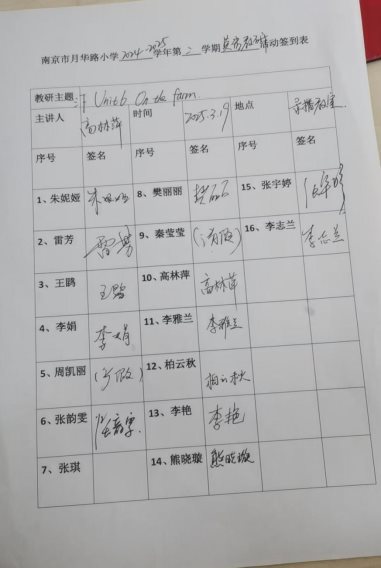 南京市月华路小学2024-2025学年第二学期英语教研活动签到表
教研主题: Unit 6 On the farm
主讲人 高林萍 时间 2025.3.19 地点 录播教室
序号 签名 序号 签名 序号 签名
1、朱妮娅 朱妮娅 8、樊丽丽 樊丽丽 15、张宇婷
2、雷芳 雷芳 9、秦莹莹 (请假) 16、李志兰 李志兰
3、王鹍 王鹍 10、高林萍 高林萍
4、李娟 李娟 11、李雅兰 李雅兰
5、周凯丽 (请假) 12、柏云秋 柏云秋
6、张韵雯 张韵雯 13、李艳 李艳
7、张琪 14、熊晓璇 熊晓璇